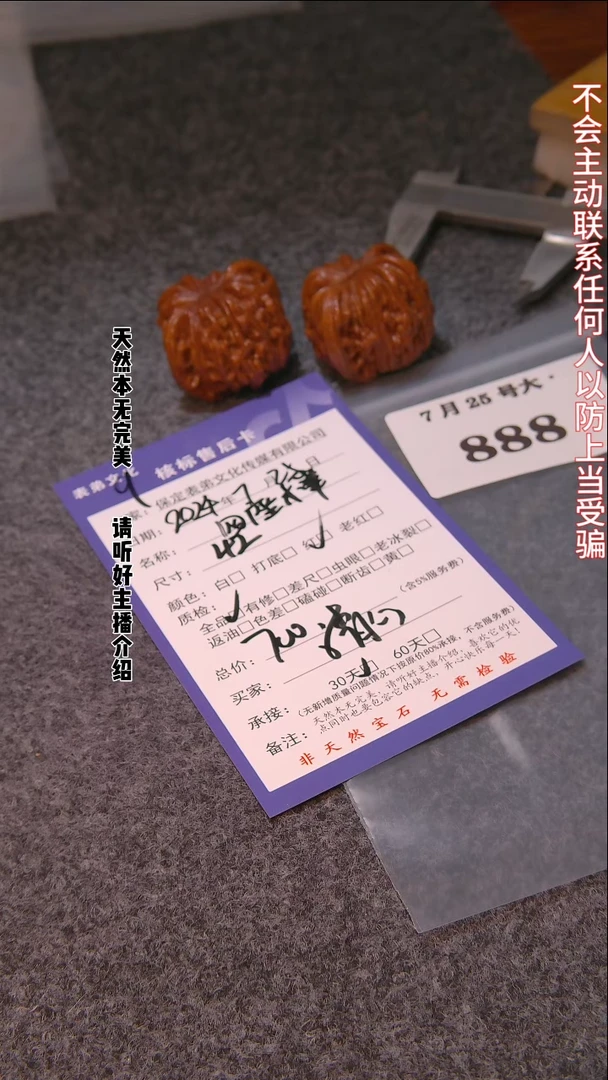 不会主动联系任何人以防上当受骗
天然本无完美
请听好主播介绍
7月25号大·
888
表弟文化
核标售后卡
家：保定表弟文化传媒有限公司
日期：2024 年 7 月 日
名称：
尺寸：42
颜色：白□ 打底□ 红□ 老红□
质检：全品□有修□差尺□虫眼□老冰裂□
返油□色差□磕碰□断齿□黄□
总价：700 (含5%服务费)
买家：
承接：30天□ 60天□
(无新增质量问题情况下按原价80%承接，不含服务费)
备注：天然本无完美，请听好主播介绍，喜欢它的优
点同时也要包容它的缺点，开心快乐每一天！
非天然宝石 无需检验